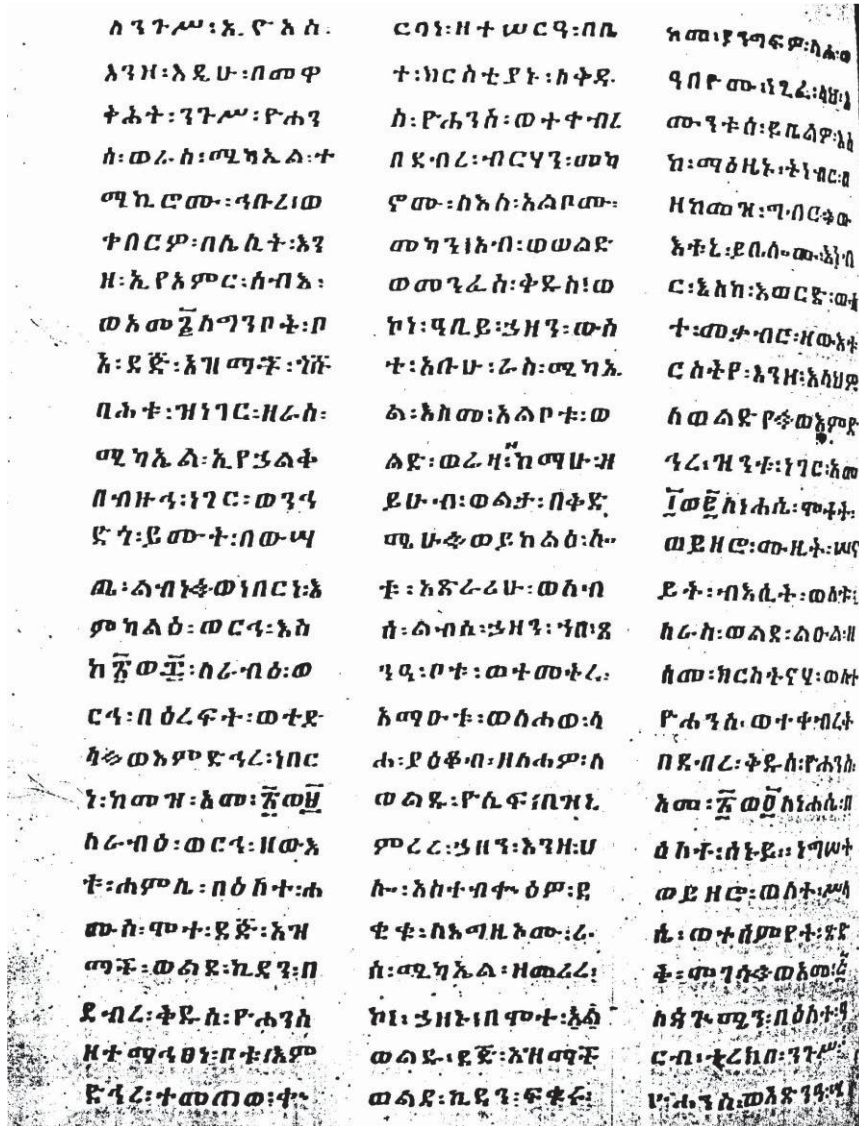 ለንጉሥ፡ኢዮአስ፡
እንዘ፡እዲሁ፡በመዋ
ቅሕት፡ንጉሥ፡ዮሐን
ስ፡ወራስ፡ሚካኤል፡ተ
ማኪሮሙ፡ኅቡረ፡ወ
ተበርዎ፡በሌሊት፡እን
ዘ፡ኢየአምር፡ሰብእ፡
ወአመ፪ለግንቦት፡ቦ
አ፡ደጅ፡አዝማች፡ጎሹ
ባሕቱ፡ዝነገር፡ዘራስ፡
ሚካኤል፡ኢየኃልቅ
በብዙኅ፡ነገር፡ወንኅ
ድጎ፡ይሙት፡በውሣ
ጤ፡ልብነ፨ወነበርነ፡እ
ምካልዕ፡ወርኅ፡እስ
ከ፳ወ፯፡ለራብዕ፡ወ
ርኅ፡በዕረፍት፡ወተድ
ላ፨ወእምድኅረ፡ነበር
ነ፡ከመዝ፡አመ፡፳ወ፰
ለራብዕ፡ወርኅ፡ዘውእ
ቱ፡ሐምሌ፡በዕለተ፡ሐ
ሙስ፡ሞተ፡ደጅ፡አዝ
ማች፡ወልደ፡ኪዳን፡በ
ደብረ፡ቅዱስ፡ዮሐንስ
ዘተማኅፀነ፡ቦቱ፡እም
ድኅረ፡ተመጠወ፡ቍ
ርባነ፡ዘተሠርዓ፡በቤ
ተ፡ክርስቲያኑ፡ለቅዱ
ስ፡ዮሐንስ፡ወተቀብረ
በደብረ፡ብርሃን፡መካ
ኖሙ፡ለእለ፡አልቦሙ፡
መካን፡አብ፡ወወልድ
ወመንፈስ፡ቅዱስ፡ወ
ኮነ፡ዓቢይ፡ኃዘን፡ውስ
ተ፡አቡሁ፡ራስ፡ሚካኤ
ል፡እስመ፡አልቦቱ፡ወ
ልድ፡ወራዛ፡ከማሁ፡ዘ
ይሁብ፡ወልታ፡በቅድ
ሚሁ፨ወይከልዕ፡ሎ
ቱ፡አጽራሪሁ፡ወለብ
ሰ፡ልብሰ፡ኃዘን፡
ቦቱ፡ወተመትረ፡
አማዑቱ፡ወላሐወ፡ላ
ሐ፡ያዕቆብ፡ዘላሐዎ፡ለ
ወልዱ፡ዮሴፍ፡በዝኒ
ምረረ፡ኃዘን፡እንዘ፡ሀ
ሎ፡አስተብቍዕዎ፡ደ
ቂቁ፡ለእግዚኦሙ፡ራ
ስ፡ሚካኤል፡ዘመረረ፡
ኮነ፡ኃዘኑ፡በሞተ፡
ወልዱ፡ደጅ፡አዝማች
ወልደ፡ኪዳን፡ፍቁሩ፡
ከመ፡ያንግፍዎ፡
ዓበይሙ፡
ሙንቱሰ፡ይቤልዎ፡እስ
ከ፡ማዕዜኑ፡ትነብር፡በ
ዘከመዝ፡ግብር፨ው
እቱኒ፡ይቤሎሙ፡እነብ
ር፡እስከ፡እወርድ፡ውስ
ተ፡መቃብር፡ዘውእቱ
ርስትየ፡እንዘ፡እላህዎ
ለወልድየ፨ወእምድ
ኅረ፡ዝንቱ፡ነገር፡አመ
፲ወ፭ለነሐሴ፡ሞተት፡
ወይዘሮ፡ሙዚት፡ሠና
ይት፡ብእሲት፡ወለቱ፡
ለራስ፡ወልደ፡ልዑል፡ዘ
ስመ፡ክርስትናሃ፡ወለተ
ዮሐንስ፡ወተቀብረት
በደብረ፡ቅዱስ፡ዮሐንስ፡
አመ፡፳ወ፬ለነሐሴ፡በ
ዕለተ፡ሰኑይ፡ነግሠት
ወይዘሮ፡ወለተ፡ሥላ
ሴ፡ወተሰምየት፡ጽድ
ቅ፡መንገሳ፨ወአመ፡
ለጳጕሜን፡በዕለተ፡ዓ
ርብ፡ተረክበ፡ንጉሥ፡
ዮሐንስ፡